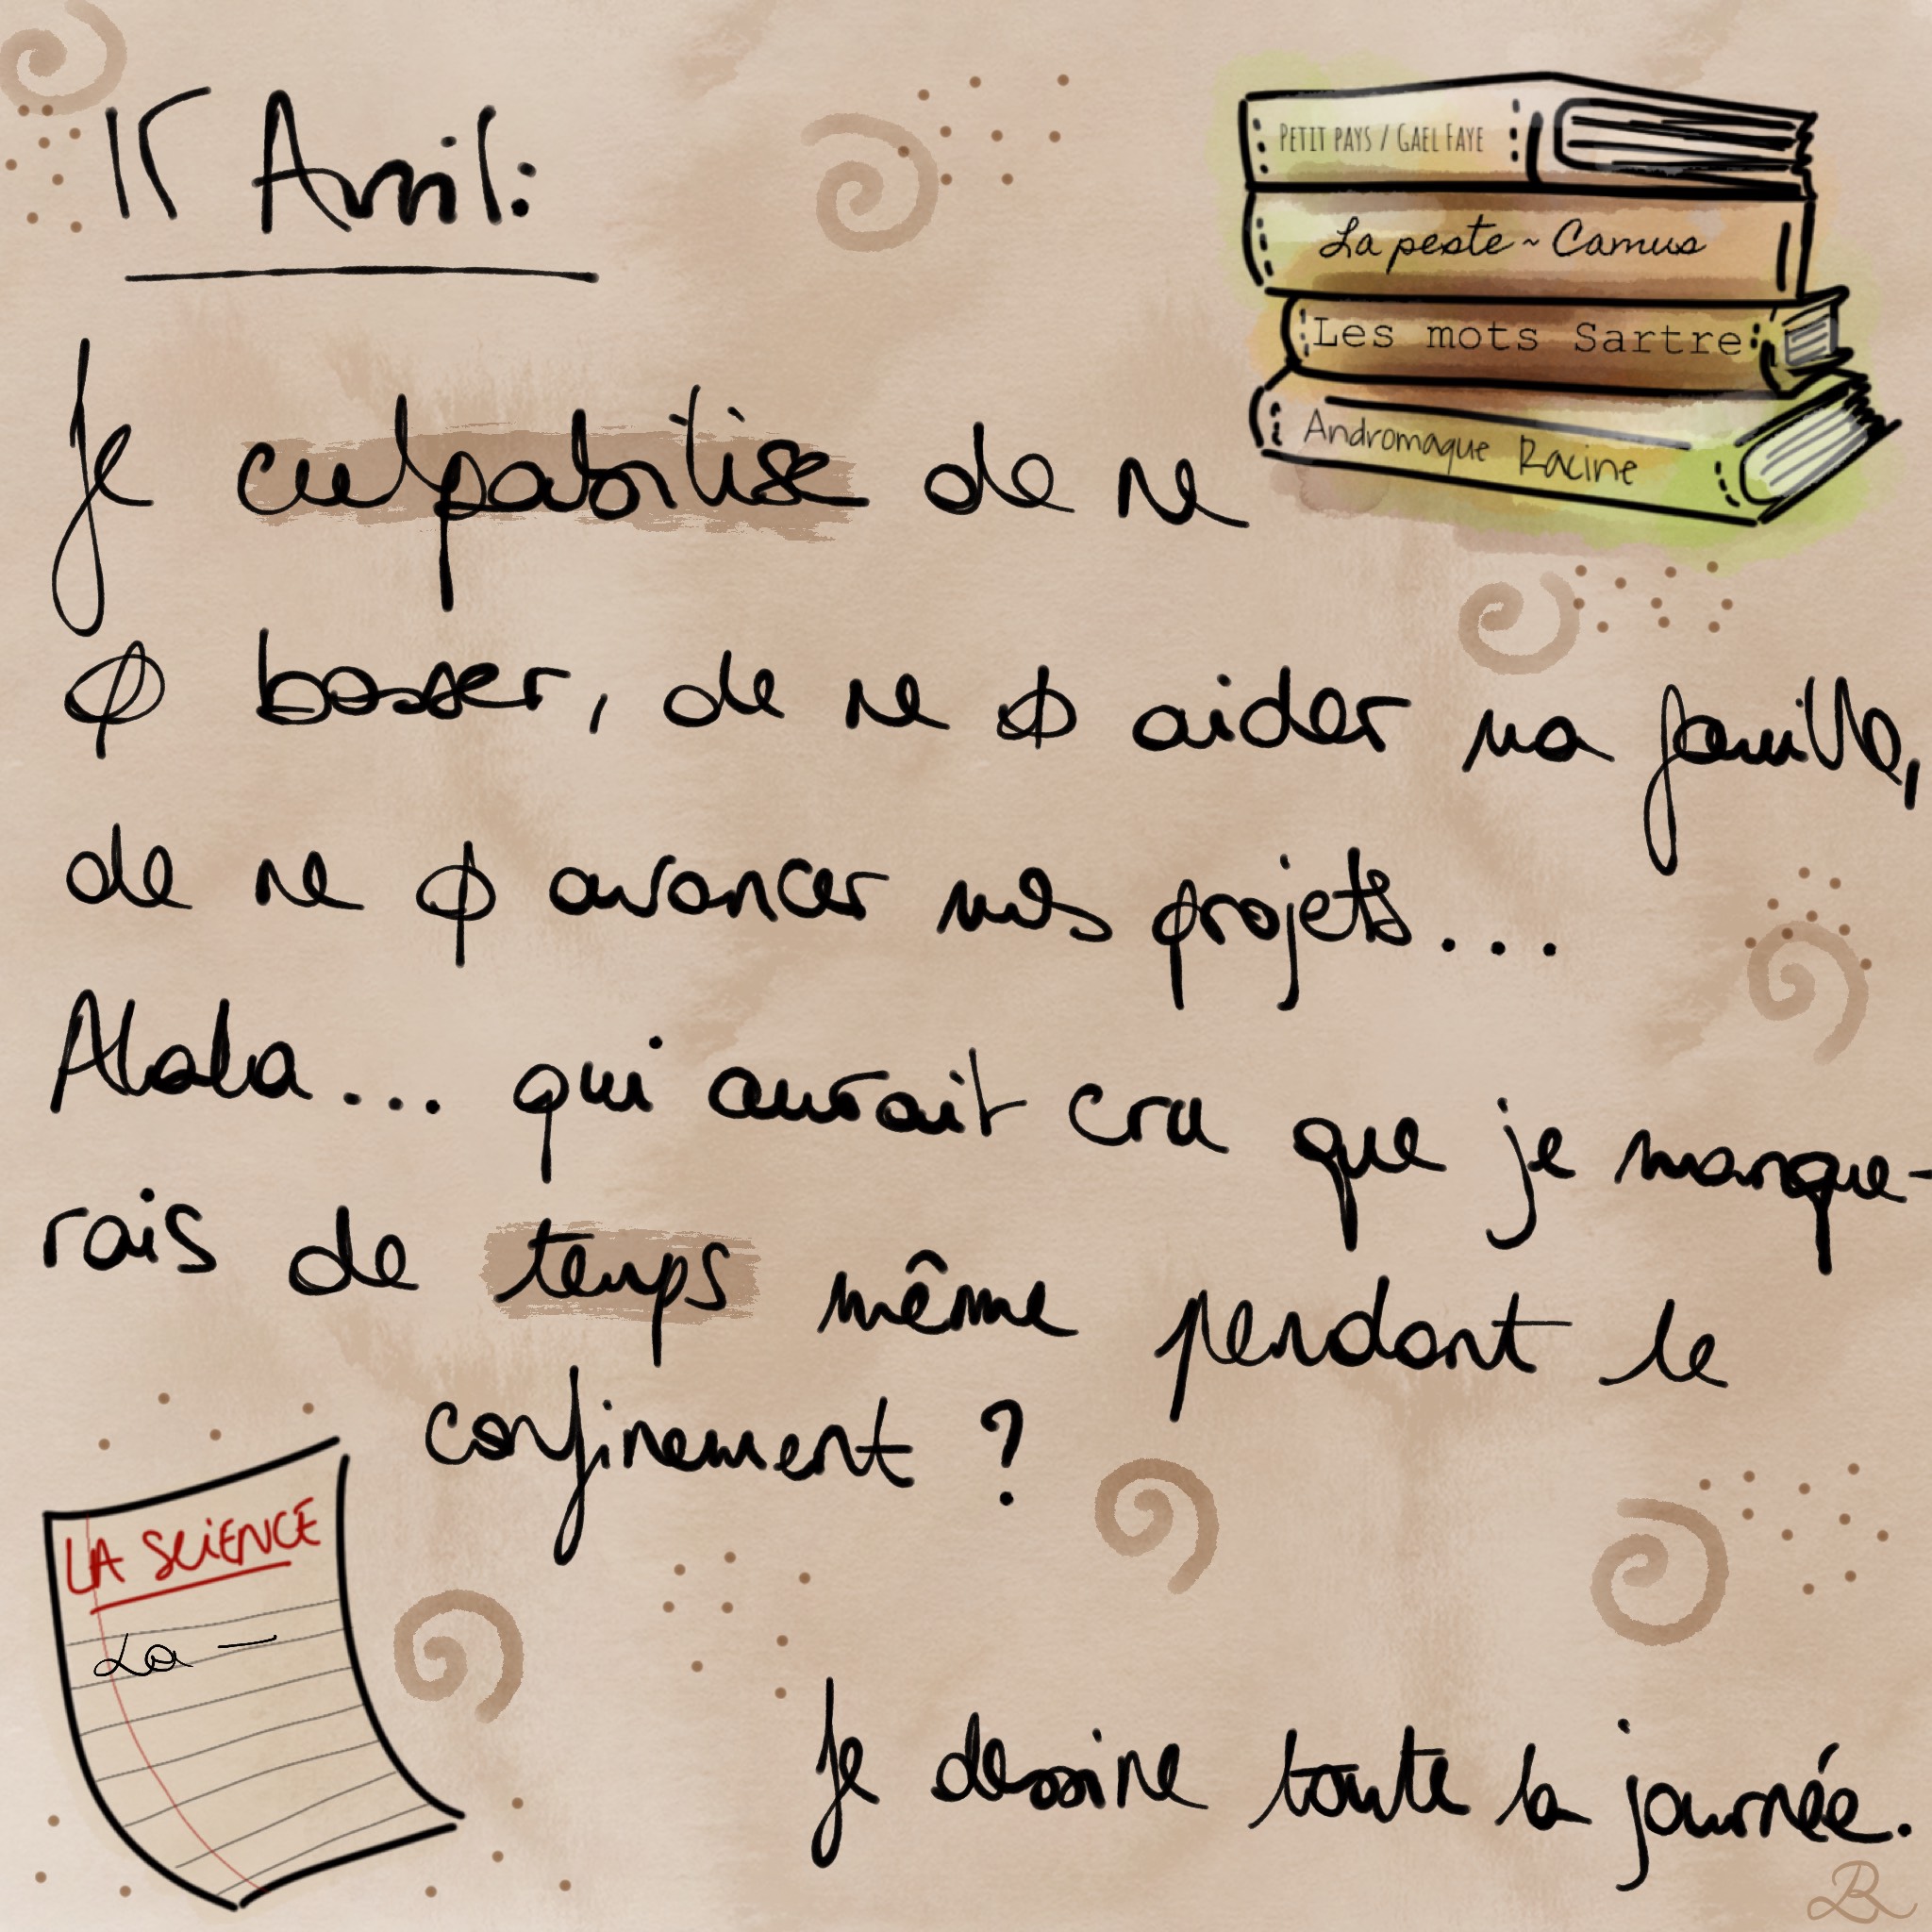 15 Avril:
PETIT PAYS / GAEL FAYE
La peste ~ Camus
Les mots Sartre
Andromaque Racine
Je culpabilise de ne
φ bosser, de ne φ aider ma famille,
de ne φ avancer mes projets...
Alala... qui aurait cru que je manque-
rais de temps même pendant le
confinement ?
LA SCIENCE
La —
Je dessine toute la journée.